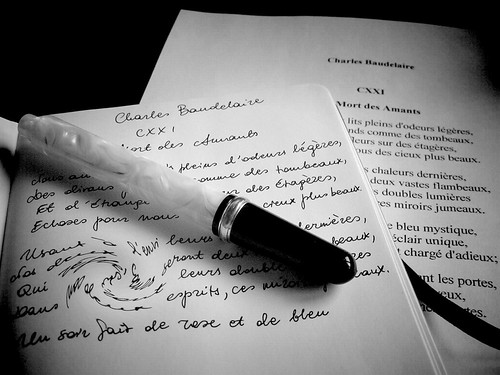 Charles Baudelaire
CXXI
Mort des Amants
lits pleins d'odeurs légères,
nds comme des tombeaux,
leurs sur des étagères,
ous des cieux plus beaux.
chaleurs dernières,
deux vastes flambeaux,
doubles lumières
es miroirs jumeaux.
bleu mystique,
éclair unique,
chargé d'adieux;
nt les portes,
Charles Baudelaire
CXXI
Mort des Amants
Nous pleins d'odeurs légères,
Des divans comme des tombeaux,
Et d'étrange des Étagères,
Écloses pour nous cieux plus beaux.
Usant à l'envi leurs dernières,
seront deux beaux,
Qui leurs double
Dans esprits, ces miroi aux.
Un soir fait de rose et de bleu